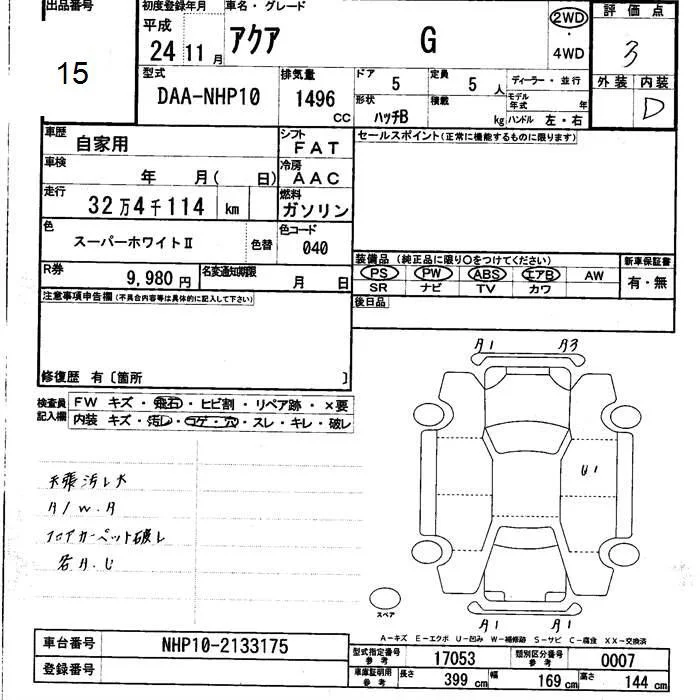 出品番号
15
初度登録年月
平成
24 11 月
車名・グレード
アクア G
2WD
・
4WD
評価点
3
外装 内装
D
型式
DAA-NHP10
排気量
1496 CC
ドア
5
定員
5 人
ディーラー・並行
形状
ハッチB
積載
kg
モデル年式 年
ハンドル 左・右
車歴
自家用
シフト
FAT
セールスポイント(正常に機能するものに限ります)
車検
年 月( 日)
冷房
AAC
走行
32万4千114 km
燃料
ガソリン
色
スーパーホワイトⅡ
色替
色コード
040
R券
9,980 円
名変通知期限
月 日
装備品 (純正品に限り○をつけてください)
PS PW ABS エアB AW
SR ナビ TV カワ
新車保証書
有・無
後日品
注意事項申告欄(不具合内容等は具体的に記入して下さい)
修復歴 有〔箇所 〕
検査員記入欄
FW キズ・飛石・ヒビ割・リペア跡・×要
内装 キズ・汚レ・コゲ・穴・スレ・キレ・破レ
A1 A3
天張汚レ大
A/W.A
フロアカーペット破レ
各A.U
U1
A1 A1
スペア
A-キズ E-エクボ U-凹み W-補修跡 S-サビ C-腐食 XX-交換済
車台番号
NHP10-2133175
登録番号
型式指定番号
参考
17053
類別区分番号
参考
0007
車庫証明用
参考
長さ
399 cm
幅
169 cm
高さ
144 cm